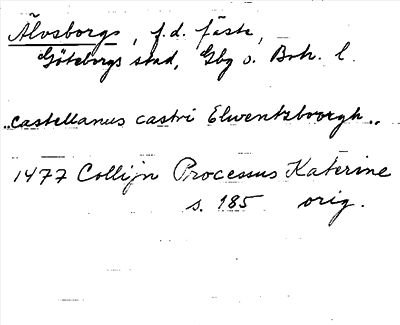 Älvsborgs, f.d. fäste,
Göteborgs stad, Gbg o. Boh. l.
"castellanus castri Elwentzboorgh"
1477 Collijn Processus Katerine
s. 185 orig.